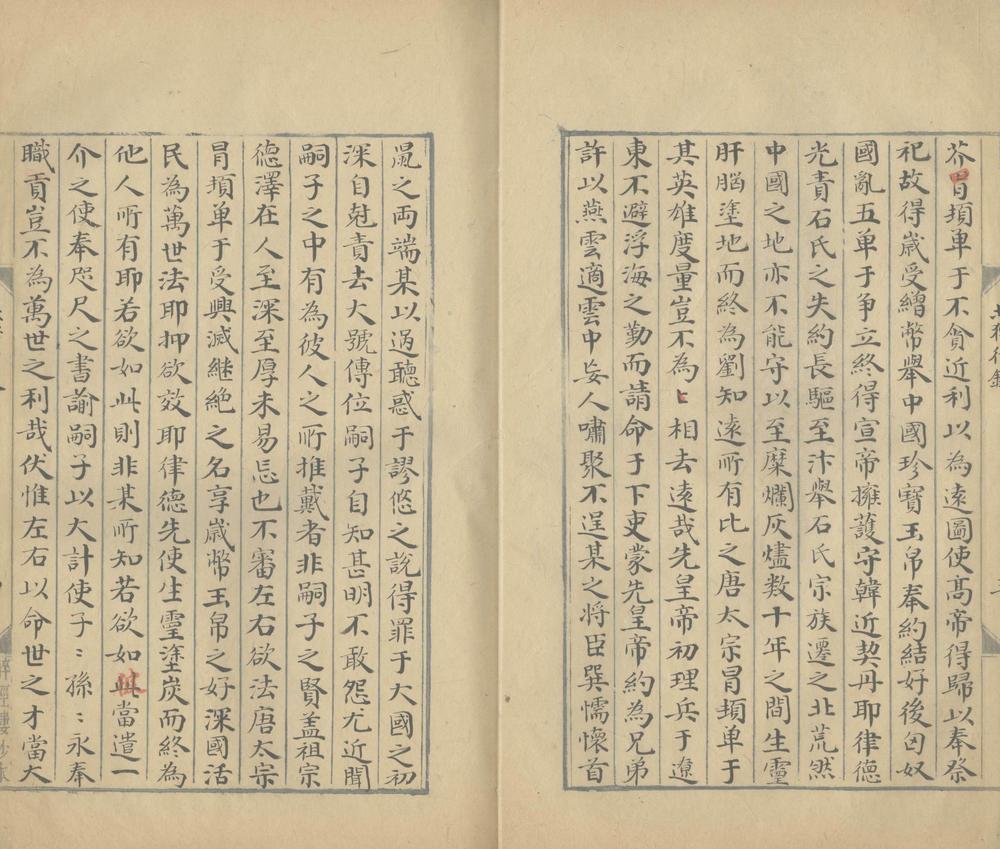 芥冒頓单于不貪近利以為遠圖使髙帝得歸以奉祭
祀故得歳受繒幣舉中國珍寶玉帛奉約結好後匈奴
國亂五单于争立終得宣帝擁䕶守韓近契丹耶律德
光責石氏之失約長驅至汴舉石氏宗族遷之北荒然
中國之地亦不能守以至糜爛灰燼数十年之間生靈
肝腦塗地而終為劉知遠所有比之唐太宗冒頓单于
其英雄度量豈不為〻相去遠哉先皇帝初理兵于遼
東不避浮海之勤而請命于下吏蒙先皇帝約為兄弟
許以燕雲適雲中妄人嘯聚不逞某之将臣巽懦懐首
䑕之両端某以過聽惑于謬悠之說得罪于大國之初
深自尅責去大號傳位嗣子自知甚明不敢怨尤近聞
嗣子之中有為彼人之所推戴者非嗣子之賢盖祖宗
德澤在人至深至厚未易忘也不審左右欲法唐太宗
冒頓单于受興滅継絶之名享歳幣玉帛之好深國活
民為萬世法耶抑欲效耶律德先使生靈塗炭而終為
他人所有耶若欲如此則非某所知若欲如彼當遣一
介之使奉咫尺之書諭嗣子以大計使子〻孫〻永奉
職貢豈不為萬世之利哉伏惟左右以命世之才當大